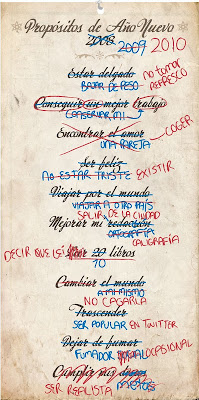 Propósitos de Año Nuevo
2008 2009 2010
Estar delgado no tomar
BAJAR DE PESO REFRESCO
Conseguir un mejor trabajo
CONSERVAR MI
COGER
Encontrar el amor
UNA PAREJA
Ser feliz
NO ESTAR TRISTE EXISTIR
Viajar por el mundo
VIAJAR A OTRO PAÍS
SALIR DE LA CIUDAD
Mejorar mi redacción
ORTOGRAFÍA
CALIGRAFÍA
DECIR QUE LEÍ Leer 20 libros
10
Cambiar el mundo
A MI MISMO
NO CAGARLA
Trascender
SER POPULAR EN TWITTER
Dejar de fumar
FUMADOR SOCIAL OCASIONAL
Cumplir mis deseos
METAS
SER REALISTA